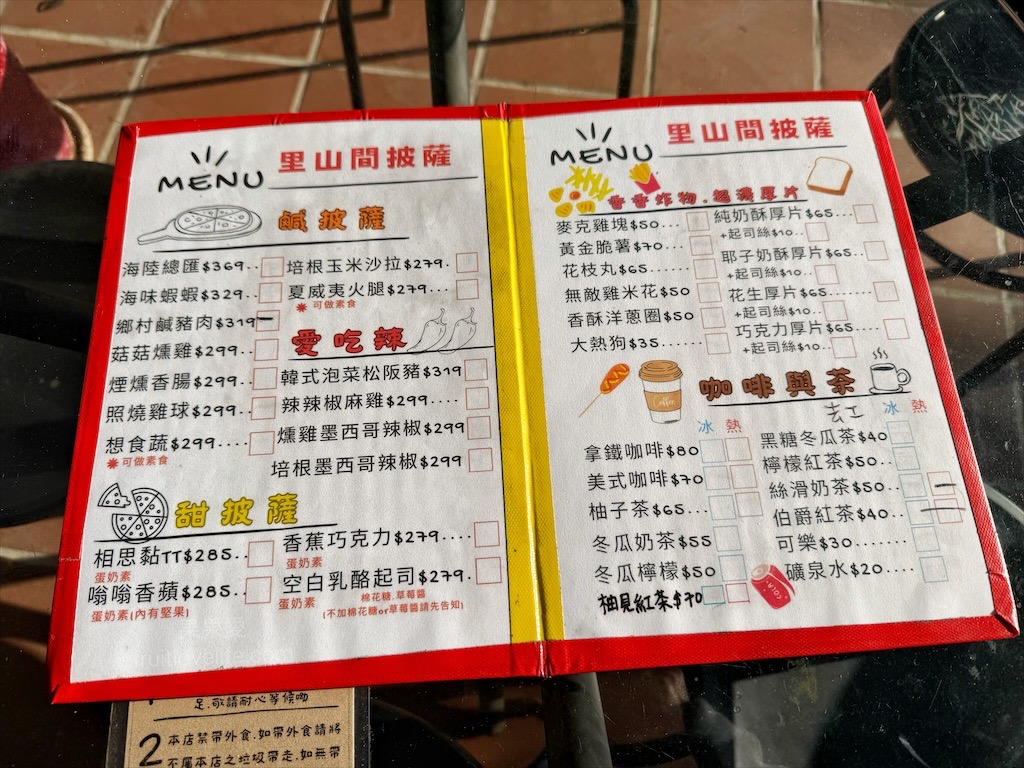 MENU 里山間披薩
鹹披薩
海陸總匯$369..
海味蝦蝦$329..
鄉村鹹豬肉$319
菇菇燻雞$299..
煙燻香腸$299..
照燒雞球$299..
想食蔬$299....
可做素食
培根玉米沙拉$279.
夏威夷火腿$279...
可做素食
愛吃辣
韓式泡菜松阪豬$319
辣辣椒麻雞$299....
燻雞墨西哥辣椒$299
培根墨西哥辣椒$299
甜披薩
相思黏TT$285..
蛋奶素
嗡嗡香蘋$285..
蛋奶素(內有堅果)
香蕉巧克力$279....
蛋奶素
空白乳酪起司$279.
蛋奶素 棉花糖.草莓醬
(不加棉花糖or草莓醬請先告知)
MENU 里山間披薩
香香炸物.超濃厚片
麥克雞塊$50...
黃金脆薯$70...
花枝丸$65......
無敵雞米花$50
香酥洋蔥圈$50
大熱狗$35.....
純奶酥厚片$65...
+起司絲$10..
耶子奶酥厚片$65..
+起司絲$10..
花生厚片$65......
+起司絲$10..
巧克力厚片$65....
+起司絲$10..
咖啡與茶
Coffee
冰 熱
拿鐵咖啡$80
美式咖啡$70
柚子茶$65...
冬瓜奶茶$55
冬瓜檸檬$50
柚見紅茶$70
冰 熱
黑糖冬瓜茶$40
檸檬紅茶$50..
絲滑奶茶$50..
伯爵紅茶$40..
可樂$30.......
礦泉水$20....
COLA
足,敬請耐心等候呦
2 本店禁帶外食,如帶外食請將
不屬本店之垃圾帶走,如無帶